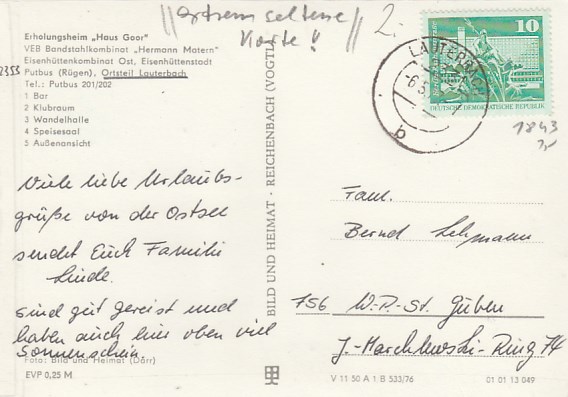 extrem seltene
Karte !!
2,-
Erholungsheim „Haus Goor"
VEB Bandstahlkombinat „Hermann Matern"
Eisenhüttenkombinat Ost, Eisenhüttenstadt
2353 Putbus (Rügen), Ortsteil Lauterbach
Tel.: Putbus 201/202
1 Bar
2 Klubraum
3 Wandelhalle
4 Speisesaal
5 Außenansicht
Viele liebe Urlaubs-
grüße von der Ostsee
sendet Euch Familie
Linde.
Sind gut gereist und
haben auch hier oben viel
Sonnenschein
Foto: Bild und Heimat (Dörr)
EVP 0,25 M
BILD UND HEIMAT · REICHENBACH (VOGTL
10
DEUTSCHE DEMOKRATISCHE REPUBLIK
LAUTERBACH
b
1843
Fam.
Bernd Lehmann
756 W.-P.-St. Guben
J.-Marchlewski-Ring 74
V 11 50 A 1 B 533/76
01 01 13 049